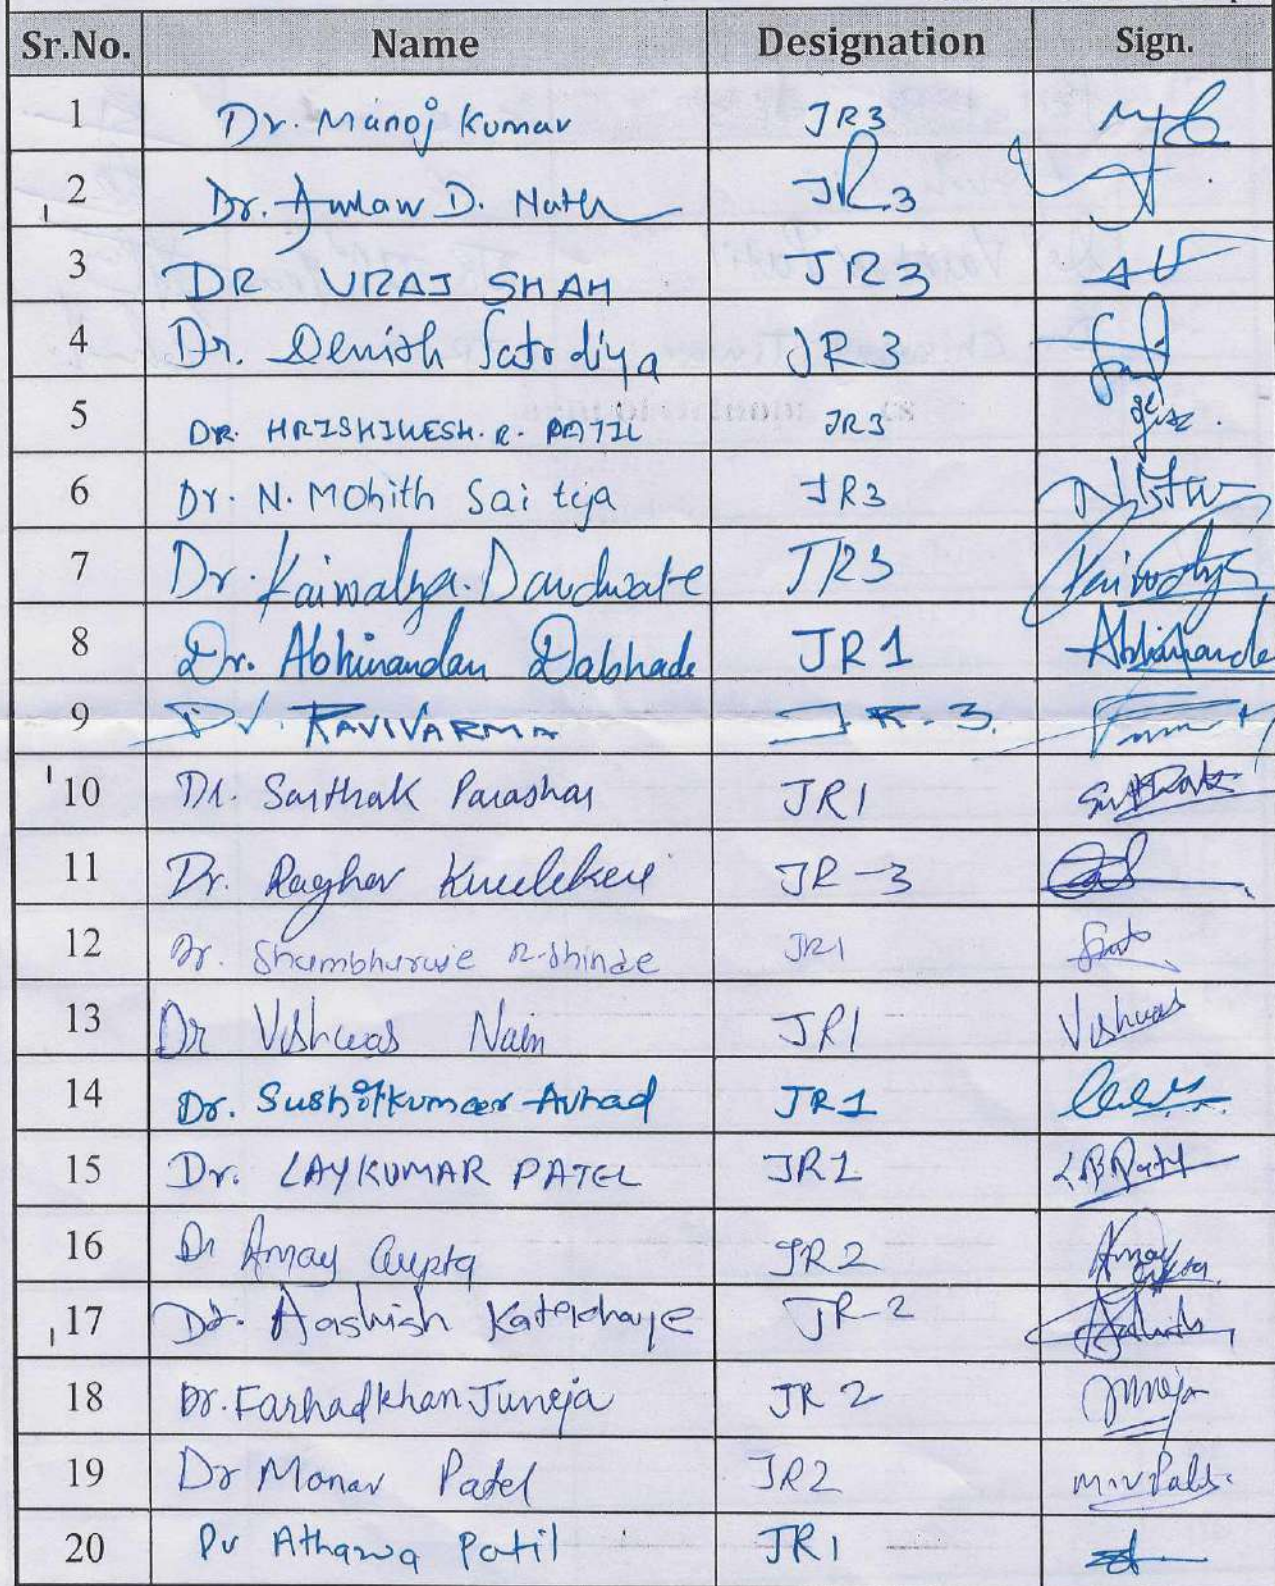 Sr.No. Name Designation Sign.
1 Dr. Manoj Kumar JR3
2 Dr. D. Nath JR3
3 DR VRAJ SHAH JR3
4 Dr. Denish Satodiya JR3
5 DR. HRISHIKESH. R. PATIL JR3
6 Dr. N. Mohith Sai teja JR3
7 Dr. Kaiwalya. Dandwate JR3 Kaiwalya
8 Dr. Abhinandan Dabhade JR1 Abhinandan
9 Dr. RAVIVARMA JR-3.
10 Dr. Sarthak Parashar JR1 Sarthak
11 Dr. Raghav JR-3
12 Dr. R. Shinde JR1
13 Dr Vishwas Nain JR1 Vishwas
14 Dr. Sushilkumar Avhad JR1
15 Dr. LAYKUMAR PATEL JR1 L B Patel
16 Dr Amay Gupta JR2 Amay Gupta
17 Dr. Aashish JR-2 Aashish
18 Dr. Farhadkhan Juneja JR2 Juneja
19 Dr Manav Patel JR2
20 Dr Atharva Patil JR1